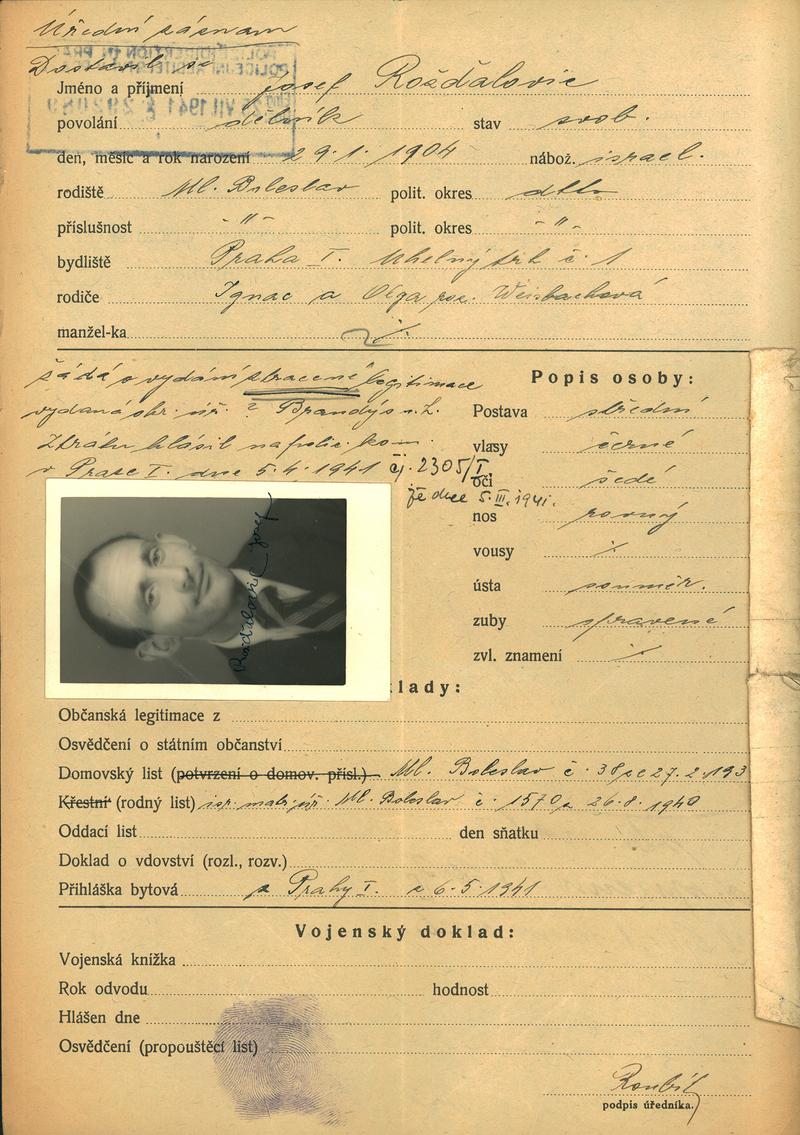 Úřední záznam
Dostavil se
Jméno a příjmení Josef Rožďalovic
povolání dělník stav svob.
den, měsíc a rok narození 29.1. 1904 nábož. israel.
rodiště Ml. Boleslav polit. okres dtto
příslušnost -"- polit. okres -"-
bydliště Praha I. Uhelný trh č. 1
rodiče Ignac a Olga roz. Weisbachová
manžel-ka ./.
žádá o vydání ztracené legitimace
vydaná obr. úř. ? Brandýs n. L.
Ztrátu hlásil na polic. kom.
v Praze I. dne 5.4. 1941 čj. 2305/I.
ze dne 5.III.1941.
Popis osoby:
Postava střední
vlasy černé
oči šedé
nos rovný
vousy ./.
ústa souměr.
zuby spravené
zvl. znamení ./.
Rožďalovic Josef
klady:
Občanská legitimace z
Osvědčení o státním občanství
Domovský list (potvrzení o domov. přísl.) Ml. Boleslav č. 38 ze 27.2.193
Křestní (rodný list) isr. matr. úř. Ml. Boleslav č. 1570 z 26.8.1940
Oddací list den sňatku
Doklad o vdovství (rozl., rozv.)
Přihláška bytová z Prahy I. z 6.5.1941
Vojenský doklad:
Vojenská knížka
Rok odvodu hodnost
Hlášen dne
Osvědčení (propouštěcí list)
Roubíč
podpis úředníka.